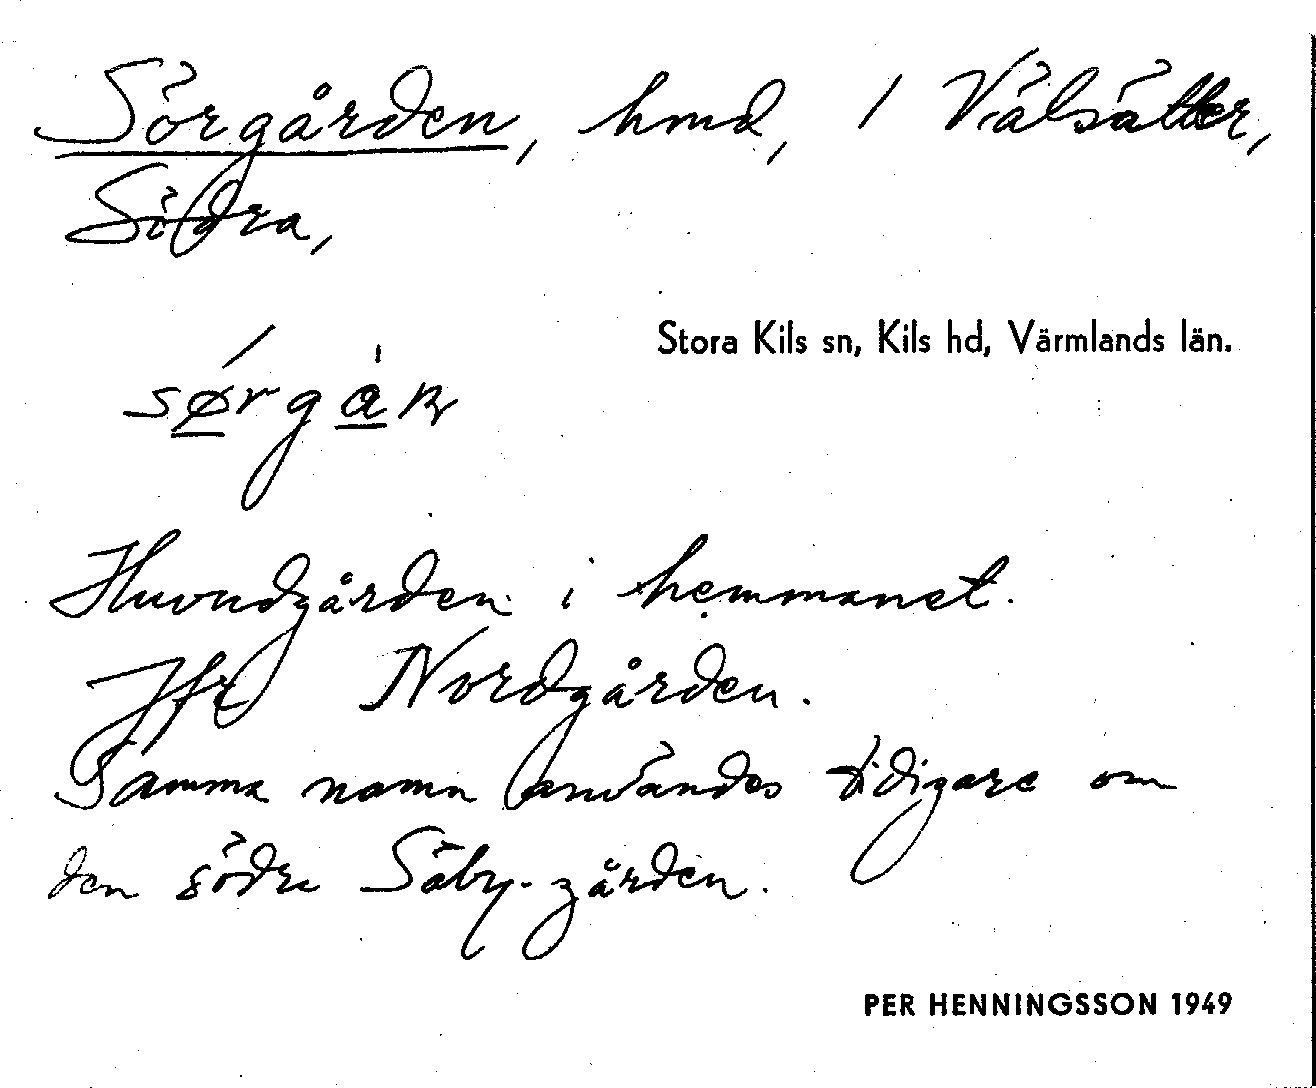 Sörgården, hmd, i Välsätter,
Södra,
Stora Kils sn, Kils hd, Värmlands län.
Huvudgården i hemmanet.
Jfr Nordgården.
Samma namn användes tidigare om
den södre Säby-gården.
PER HENNINGSSON 1949